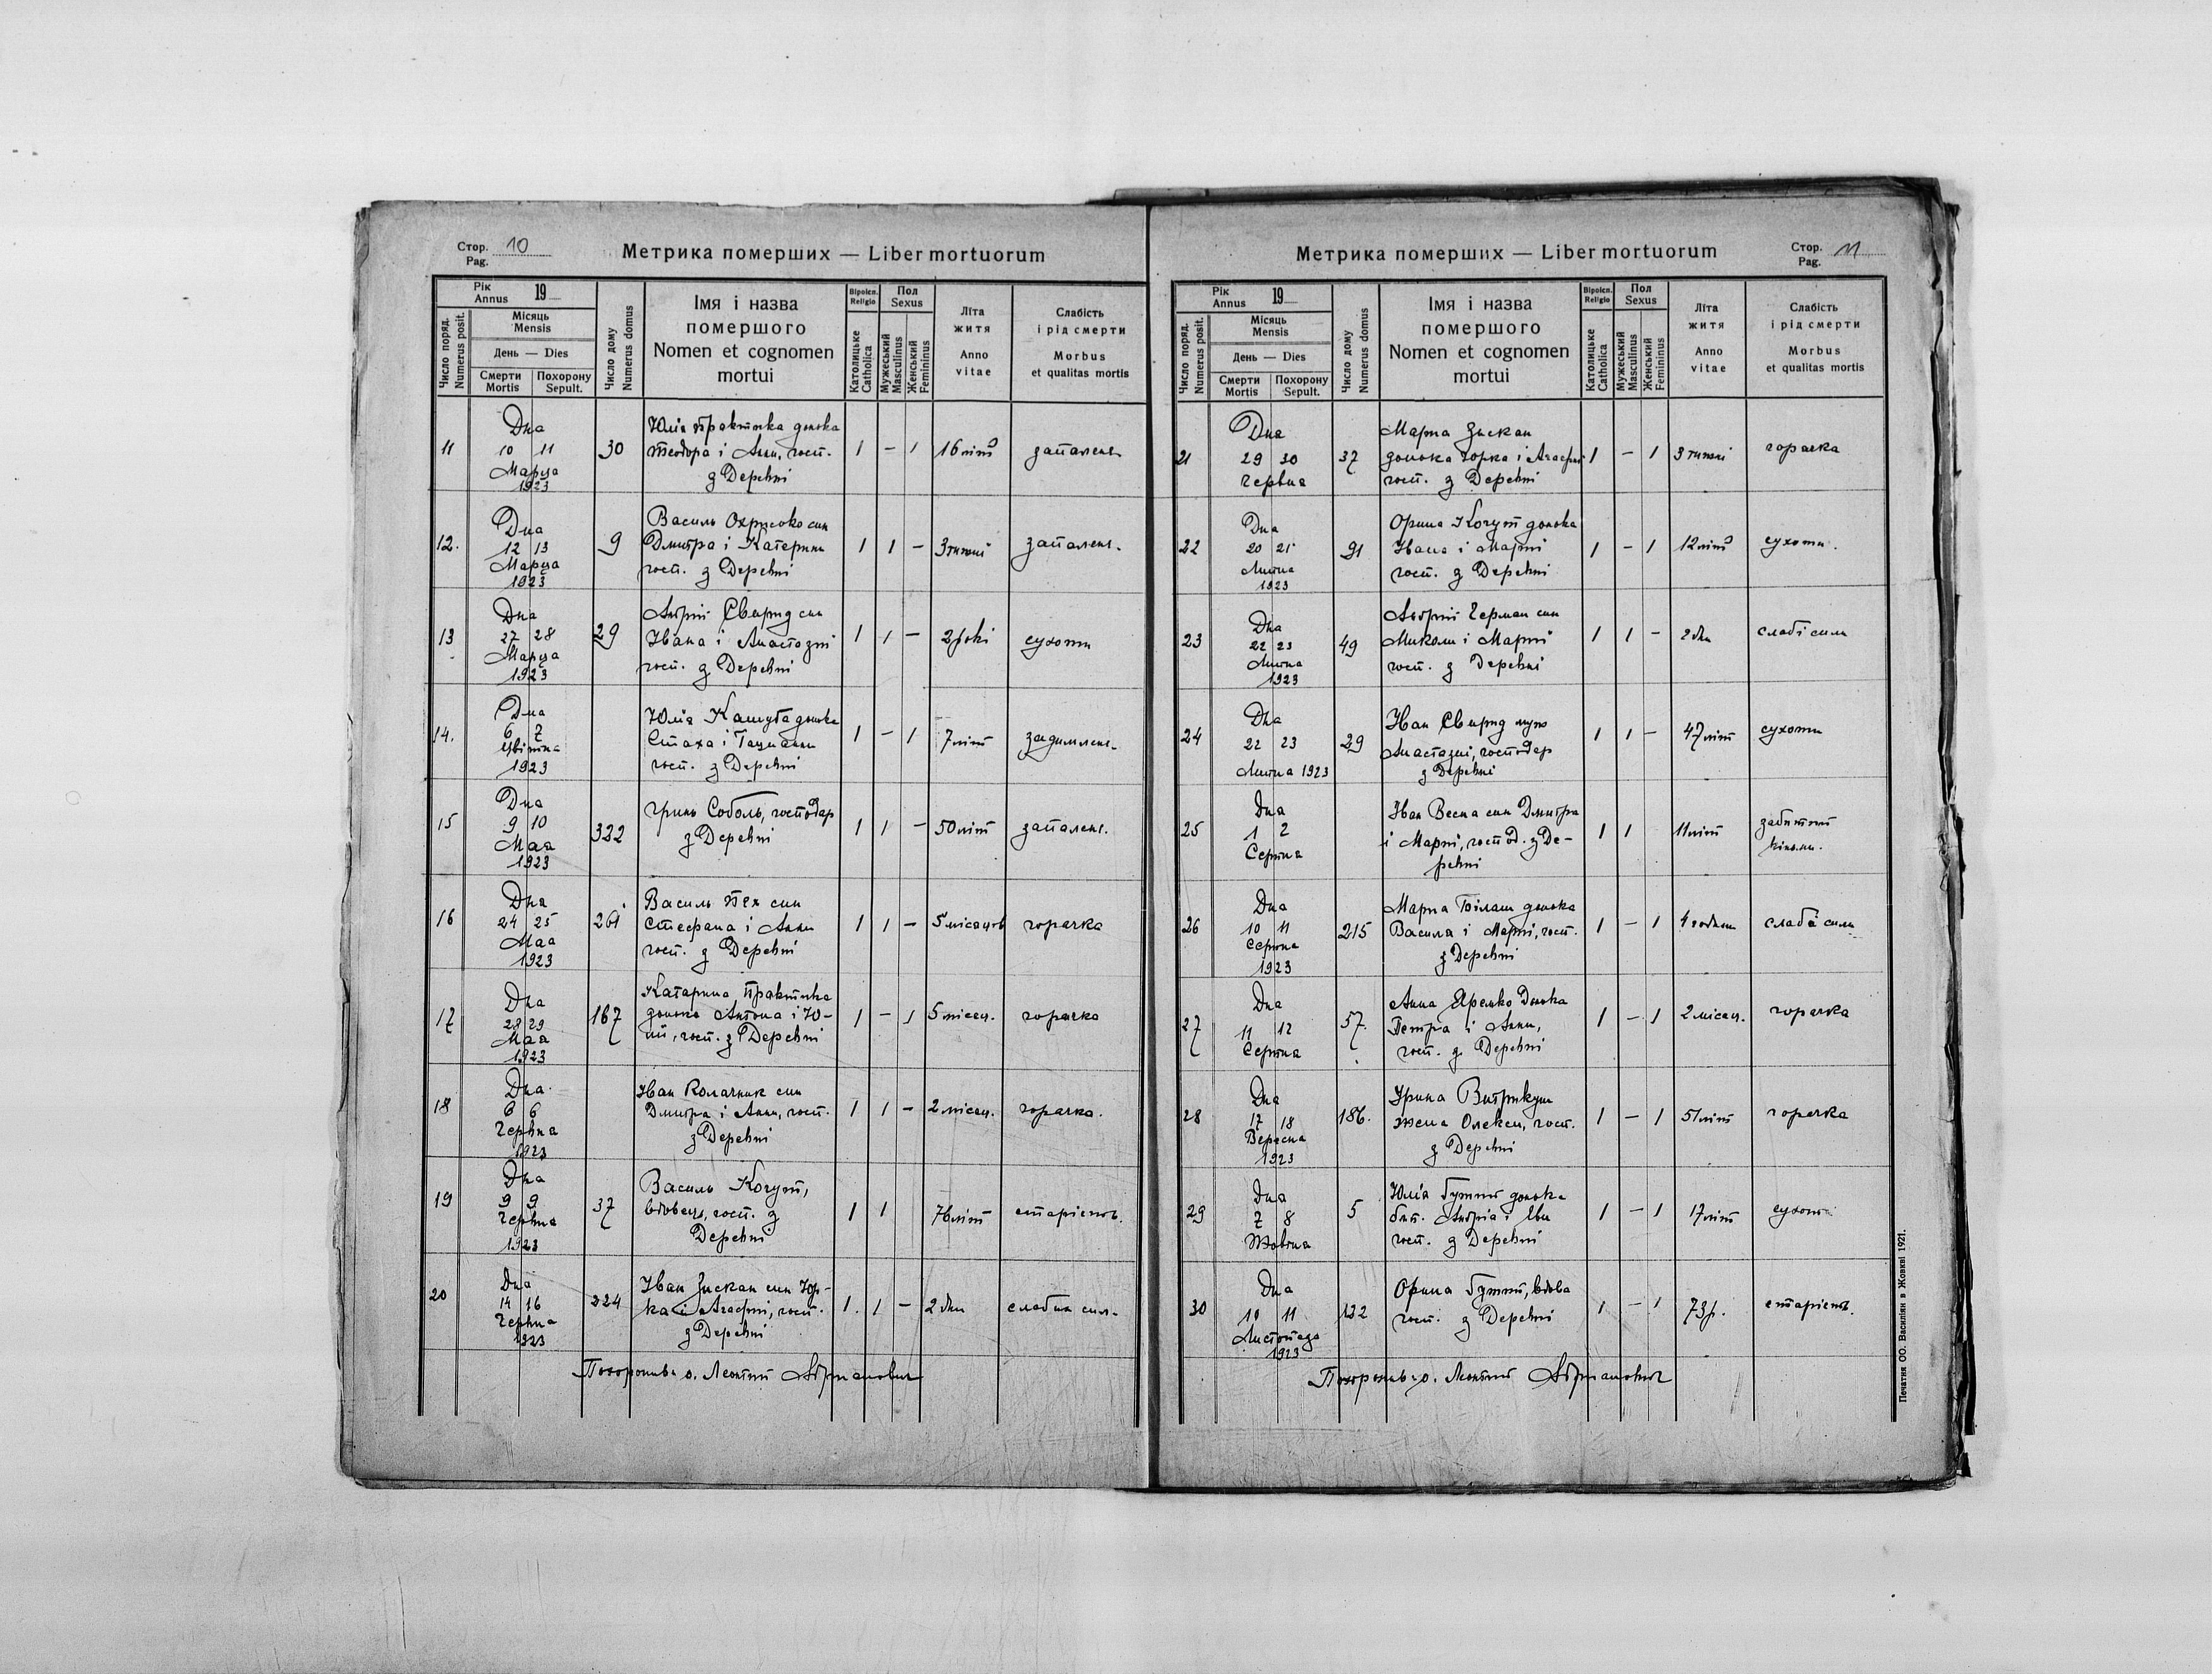 Стор. 10
Pag.
Метрика померших — Liber mortuorum
Число поряд.
Numerus posit.
Рік
Annus 19
Місяць
Mensis
День — Dies
Смерти
Mortis
Похорону
Sepult.
Число дому
Numerus domus
Імя і назва
помершого
Nomen et cognomen
mortui
Віроісп.
Religio
Католицьке
Catholica
Пол
Sexus
Мужеський
Masculinus
Женський
Femininus
Літа
житя
Anno
vitae
Слабість
і рід смерти
Morbus
et qualitas mortis
11
Дна
10 11
Марца
1923
30
Юлія Практика донька
Теодора і Анни, госп.
з Деревні
1 – 1
16 літ
запален.
12.
Дна
12 13
Марца
1923
9
Василь син
Дмитра і Катерини
госп. з Деревні
1 1 –
3 тижні
запален.
13
Дна
27 28
Марца
1923
29
Андрій Свирид син
Івана і Анастазиї
госп. з Деревні
1 1 –
2 рокі
сухоти
14.
Дна
6 7
Цвітна
1923
Юлія Кашуба донька
Стаха і
госп. з Деревні
1 – 1
7 літ
15
Дна
9 10
Мая
1923
322
Гринь Соболь, господар
з Деревні
1 1 –
50 літ
запален.
16
Дна
24 25
Мая
1923
261
Василь Пех син
Стефана і Анни
госп. з Деревні
1 1 –
5 місяців
горячка
17
Дна
28 29
Мая
1923
167
Катарина Практика
донька Антона і Ю-
лії, госп. з Деревні
1 – 1
5 місяц.
горячка
18
Дна
6 6
Червна
1923
Іван Колачник син
Дмитра і Анни, госп.
з Деревні
1 1 –
2 місяц.
горячка.
19
Дна
9 9
Червна
1923
37
Василь Когут,
вдовець, госп. з
Деревні
1 1
76 літ
старість.
20
Дна
14 16
Червна
1923
224
Іван Зискан син Юр-
ка і Агафиї, госп.
з Деревні
1. 1 –
2 дни
слабих сил.
Похоронив о. Леонтий Абрисович
Метрика померших — Liber mortuorum
Стор. 11
Pag.
Число поряд.
Numerus posit.
Рік
Annus 19
Місяць
Mensis
День — Dies
Смерти
Mortis
Похорону
Sepult.
Число дому
Numerus domus
Імя і назва
помершого
Nomen et cognomen
mortui
Віроісп.
Religio
Католицьке
Catholica
Пол
Sexus
Мужеський
Masculinus
Женський
Femininus
Літа
житя
Anno
vitae
Слабість
і рід смерти
Morbus
et qualitas mortis
21
Дна
29 30
Червна
37
Марина Зискан
донька Юрка і Агафиї
госп. з Деревні
1 – 1
3 тижні
горачка
22
Дна
20 21
Липна
1923
91
Орина Когут донька
Івана і Марії
госп. з Деревні
1 – 1
12 літ
сухоти.
23
Дна
22 23
Липна
1923
49
Андрій Герман син
Миколи і Марії
госп. з Деревні
1 1 –
2 дни
слабі сили
24
Дна
22 23
Липна 1923
29
Іван Свирид муж
Анастазиї, господар
з Деревні
1 1 –
47 літ
сухоти
25
Дна
1 2
Серпна
Іван Весна син Дмитра
і Марії, господ. з Де-
ревні
1 1
11 літ
забитий
кіньми.
26
Дна
10 11
Серпна
1923
215
Мария Білаш донька
Василя і Марії, госп.
з Деревні
1 – 1
4 години
слабі сили
27
Дна
11 12
Серпна
57.
Анна Яремко донька
Петра і Анни,
госп. з Деревні
1 – 1
2 місяц.
горачка
28
Дна
17 18
Вересна
1923
186.
Ірина Витрикуш
жена Олекси, госп.
з Деревні
1 – 1
51 літ
горачка
29
Дна
7 8
Жовтна
5
Юлія Бутий донька
Андрія і Еви
госп. з Деревні
1 – 1
17 літ
сухоти
30
Дна
10 11
Листопада
1923
132
Орина Бутий, вдова
госп. з Деревні
1 – 1
73 р.
старість.
Похоронив о. Леонтий
Печатня ОО. Василіян в Жовкві 1921.